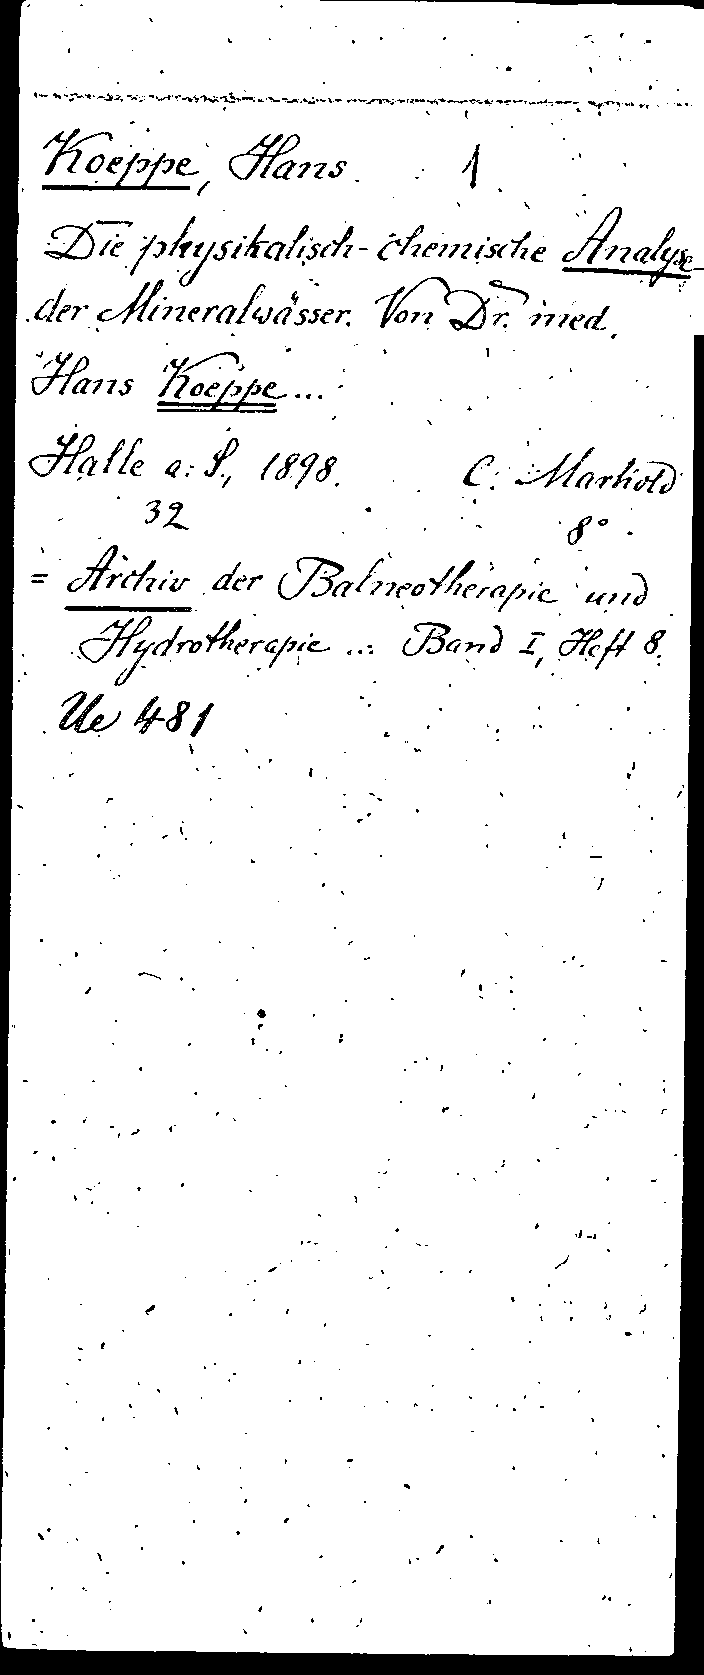 Koeppe, Hans. 1
Die physikalisch-chemische Analyse
der Mineralwässer. Von Dr. med.
Hans Koeppe...
Halle a. S., 1898. C. Marhold
32 8°
= Archiv der Balneotherapie und
Hydrotherapie ... Band I, Heft 8.
Ue 481